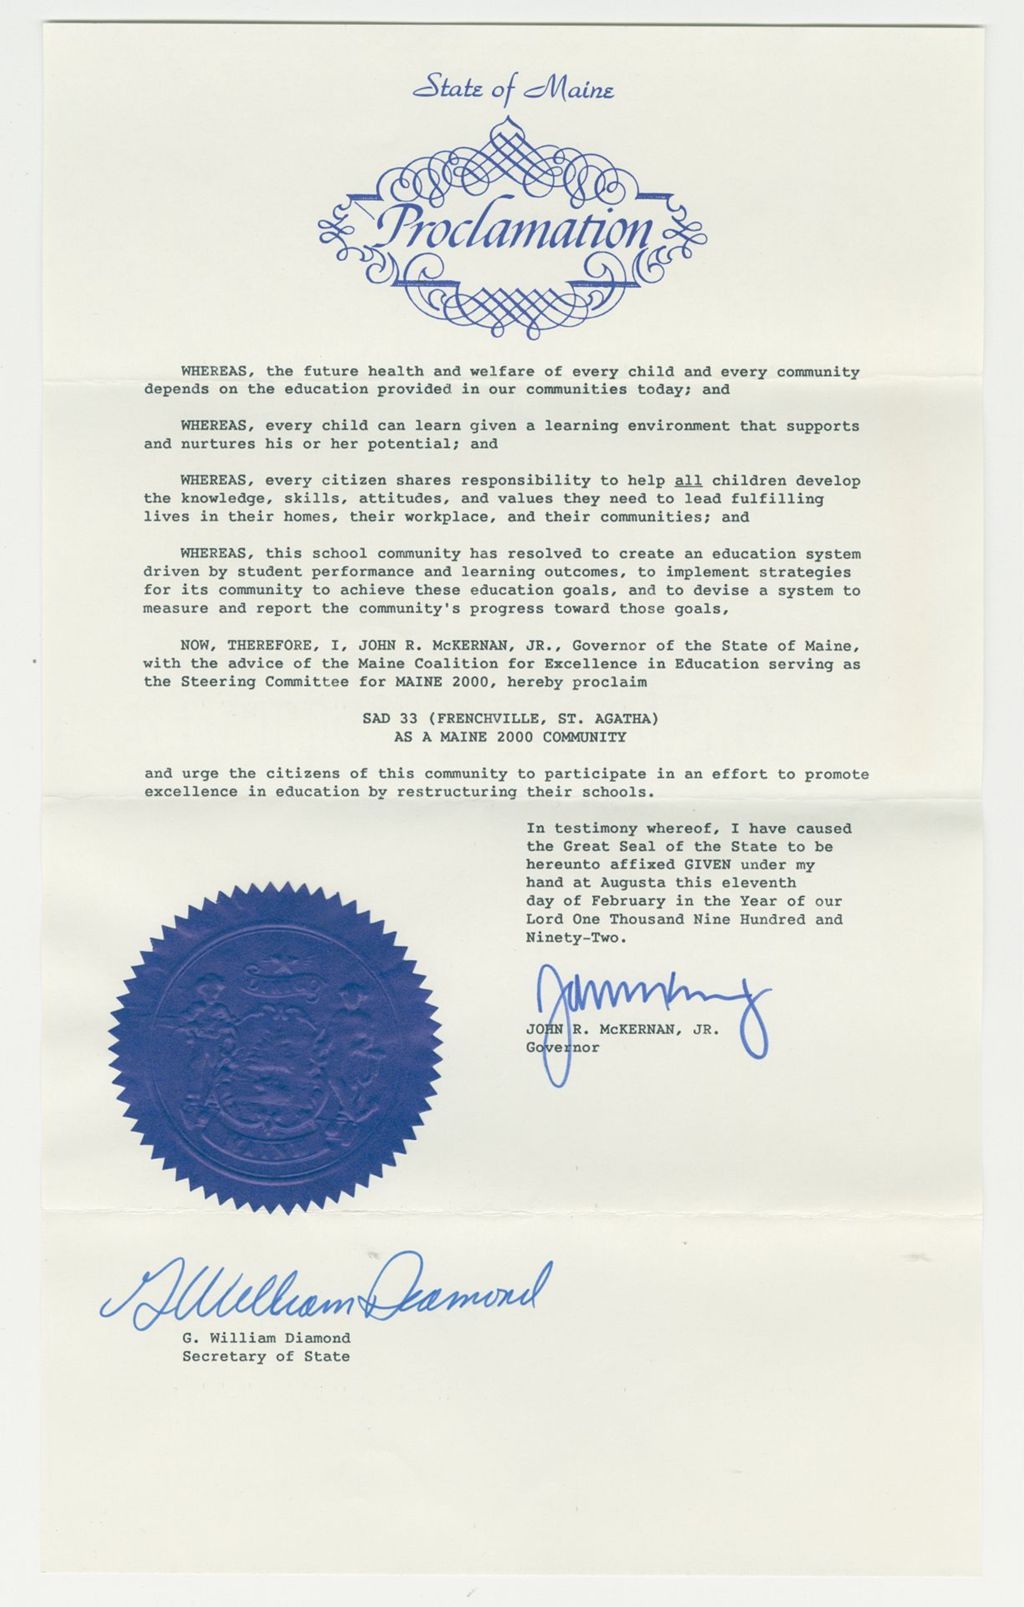 State of Maine
Proclamation
WHEREAS, the future health and welfare of every child and every community
depends on the education provided in our communities today; and
WHEREAS, every child can learn given a learning environment that supports
and nurtures his or her potential; and
WHEREAS, every citizen shares responsibility to help all children develop
the knowledge, skills, attitudes, and values they need to lead fulfilling
lives in their homes, their workplace, and their communities; and
WHEREAS, this school community has resolved to create an education system
driven by student performance and learning outcomes, to implement strategies
for its community to achieve these education goals, and to devise a system to
measure and report the community's progress toward those goals,
NOW, THEREFORE, I, JOHN R. McKERNAN, JR., Governor of the State of Maine,
with the advice of the Maine Coalition for Excellence in Education serving as
the Steering Committee for MAINE 2000, hereby proclaim
SAD 33 (FRENCHVILLE, ST. AGATHA)
AS A MAINE 2000 COMMUNITY
and urge the citizens of this community to participate in an effort to promote
excellence in education by restructuring their schools.
In testimony whereof, I have caused
the Great Seal of the State to be
hereunto affixed GIVEN under my
hand at Augusta this eleventh
day of February in the Year of our
Lord One Thousand Nine Hundred and
Ninety-Two.
JOHN R. McKERNAN, JR.
Governor
MAINE
G William Diamond
G. William Diamond
Secretary of State